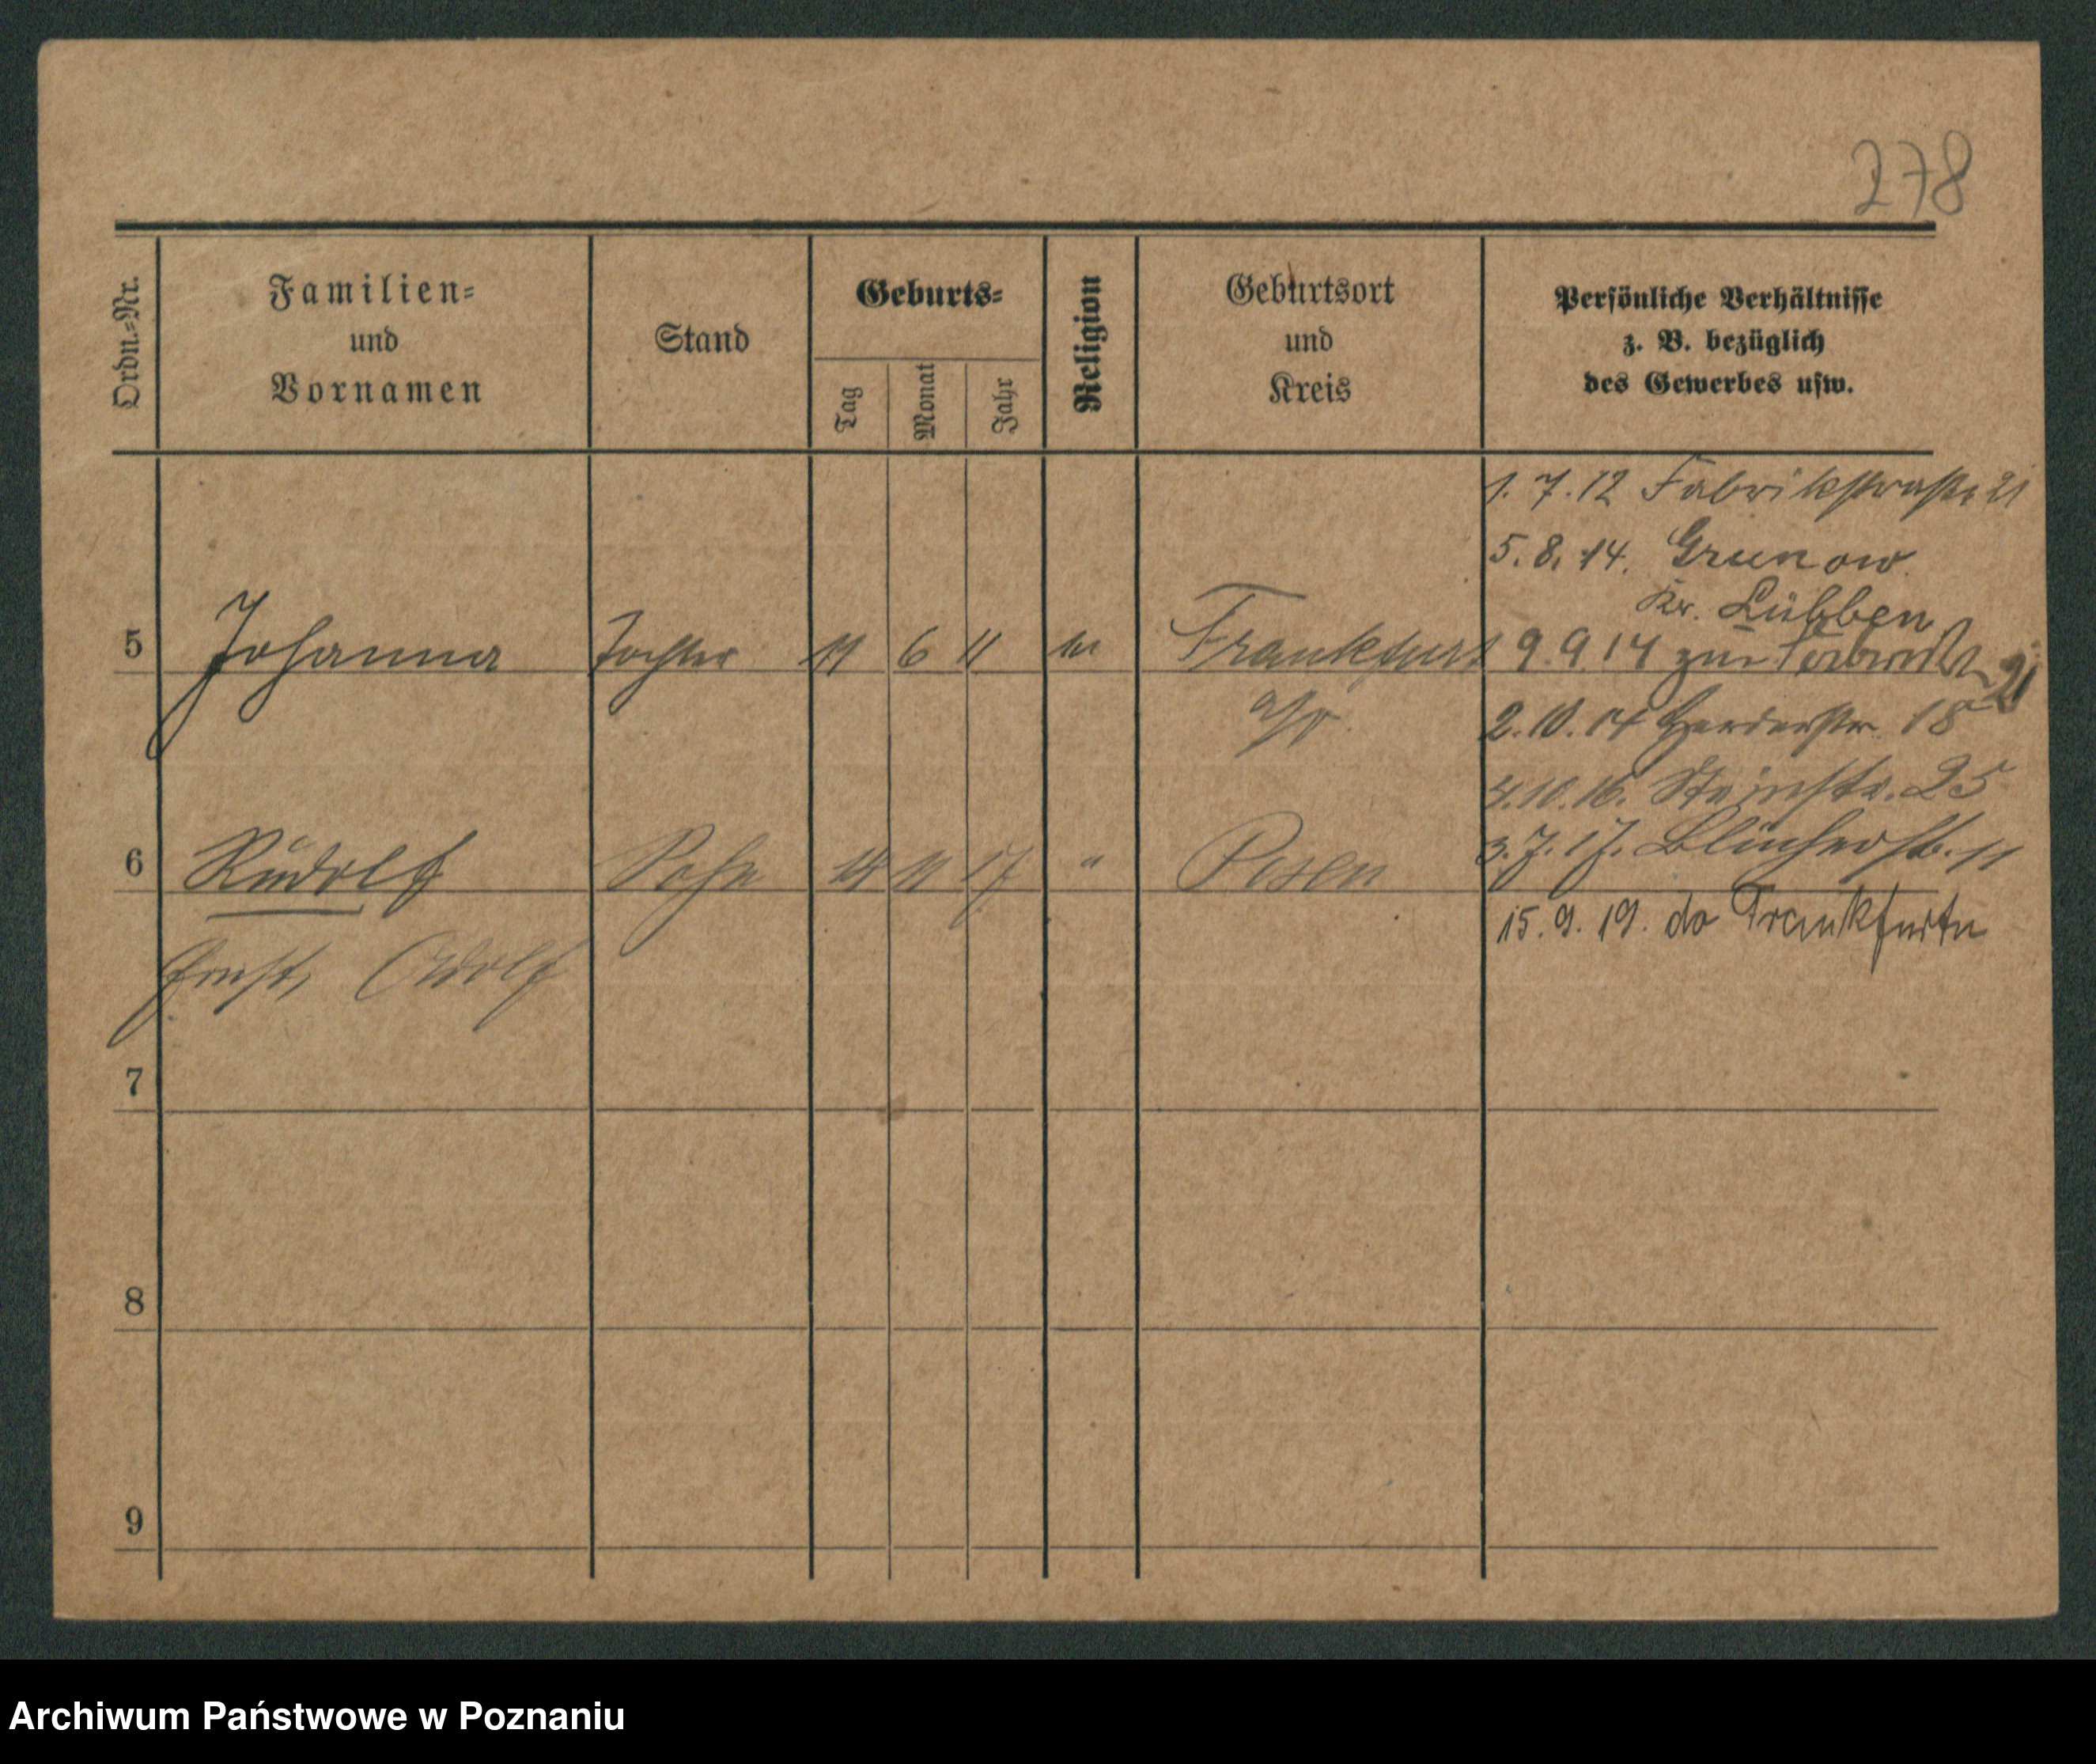 278
Ordn.-Nr.
Familien-
und
Vornamen
Stand
Geburts-
Tag
Monat
Jahr
Religion
Geburtsort
und
Kreis
Persönliche Verhältnisse
z. B. bezüglich
des Gewerbes usw.
1. 7. 12 Fabrikstraße 21
5. 8. 14. Grunow
Kr. Lübben
5 Johanna Tochter 11 6 11 Frankfurt 9. 9. 14 zur 21
a/O. 2. 10. 14 Herderstr. 18
10. 16. Steinstr. 25
3. 7. 17. Blücherstr. 11
6 Rudolf Sohn 11 17 " Posen
15. 9. 19. do Frankfurtu
Ernst, Adolf
7
8
9
Archiwum Państwowe w Poznaniu